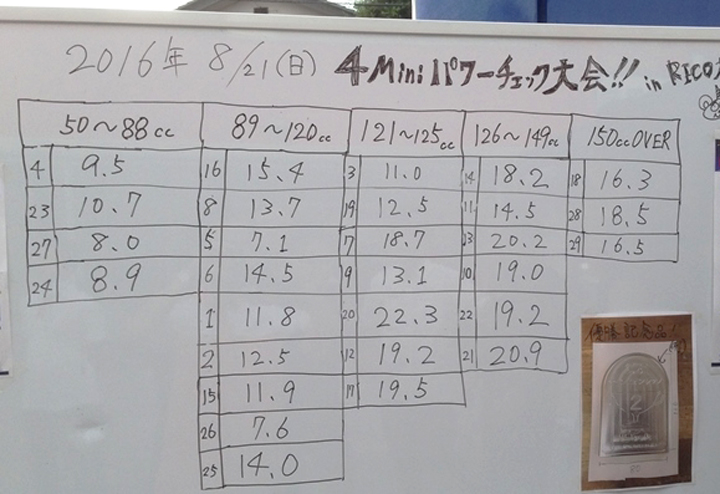 2016年 8/21(日) 4Miniパワーチェック大会!! in RICO
50～88cc 89～120cc 121～125cc 126～149cc 150ccOVER
4 9.5 16 15.4 3 11.0 14 18.2 18 16.3
23 10.7 8 13.7 19 12.5 11 14.5 28 18.5
27 8.0 5 7.1 7 18.7 13 20.2 29 16.5
24 8.9 6 14.5 9 13.1 10 19.0
1 11.8 20 22.3 22 19.2
2 12.5 12 19.2 21 20.9
15 11.9 17 19.5
26 7.6
25 14.0
優勝記念品!